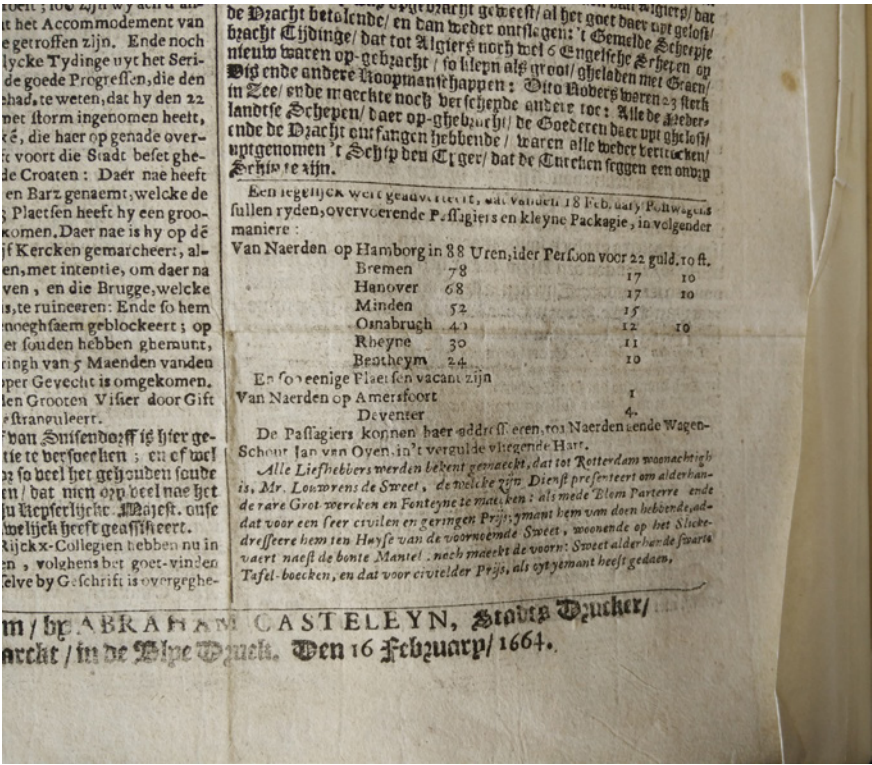 het Accommodement van
getroffen zijn. Ende noch
lycke Tydinge uyt het Seri-
de goede Progressen, die den
ehad, te weten, dat hy den 22
met storm ingenomen heeft,
die haer op genade over-
voort die Stadt beset ghe-
de Croaten : Daer nae heeft
en Barz genaemt, welcke de
Plaetsen heeft hy een groo-
komen. Daer nae is hy op dē
jf Kercken gemarcheert, al-
en, met intentie, om daer na
ven , en die Brugge, welcke
is, te ruineeren: Ende so hem
noeghsaem geblockeert ; op
souden hebben ghemunt,
ringh van 5 Maenden vanden
per Gevecht is omgekomen.
den Grooten Visier door Gift
estranguleert.
van Sinsendorff is hier ge-
tie te versoecken ; en of wel
so veel het gehouden soude
en / dat men
Keyserlijcke Majest. onse
welijck heeft geassisteert.
Rijckx-Collegien hebben nu in
en , volghens het goet-vinden
selve by Geschrift is overgeghe-
op gebracht geweest / al het goet daer uyt gelost /
de Vracht betalende / en dan weder ontslagen: 't Gemelde Scheepje
bracht Tijdinge / dat tot Algiers noch wel 6 Engelsche Schepen op
nieuw waren op-gebracht / so kleyn als groot / gheladen met Graen /
Vis ende andere Koopmanschappen : Dito Rovers waren 23 sterk
in Zee / ende maeckte noch verscheyde andere toe : Alle de Neder-
landtse Schepen / daer op-ghebracht / de Goederen daer uyt ghelost /
ende de Vracht ontfangen hebbende / waren alle weder vertrocken /
uytgenomen 't Schip den Tyger / dat de Turcken seggen een onvry
Schip te zijn.
Een iegelijck wert geadverteert, dat vanden 18 February Postwagens
sullen ryden, overvoerende Passagiers en kleyne Packagie, in volgender
maniere :
Van Naerden op Hamborg in 88 Uren, ider Persoon voor 22 guld. 10 st.
Bremen 78 17 10
Hanover 68 17 10
Minden 52 15
Osnabrugh 40 12 10
Rheyne 30 11
Bentheym 24 10
En so eenige Plaetsen vacant zijn
Van Naerden op Amersfoort 1
Deventer 4.
De Passagiers konnen haer addresseeren, tot Naerden aende Wagen-
Schout Jan van Oyen, in't vergulde vliegende Hart.
Alle Liefhebbers werden bekent gemaeckt, dat tot Rotterdam woonachtigh
is, Mr. Louwrens de Sweet , de welcke zijn Dienst presenteert om alderhan-
de rare Grot-wercken en Fonteyne te maecken : als mede Blem Parterre ende
dat voor een seer civilen en geringen Prijs; ymant hem van doen hebbende, ad-
dresseere hem ten Huyse van de voornoemde Sweet , woonende op het Slicke-
vaert naest de bonte Mantel. noch maeckt de voorn: Sweet alderhande swarte
Tafel-boecken, en dat voor civielder Prijs, als oyt yemant heeft gedaen.
m / by ABRAHAM CASTELEYN, Stadts Drucker /
arckt / in de Blye Druck. Den 16 February / 1664.